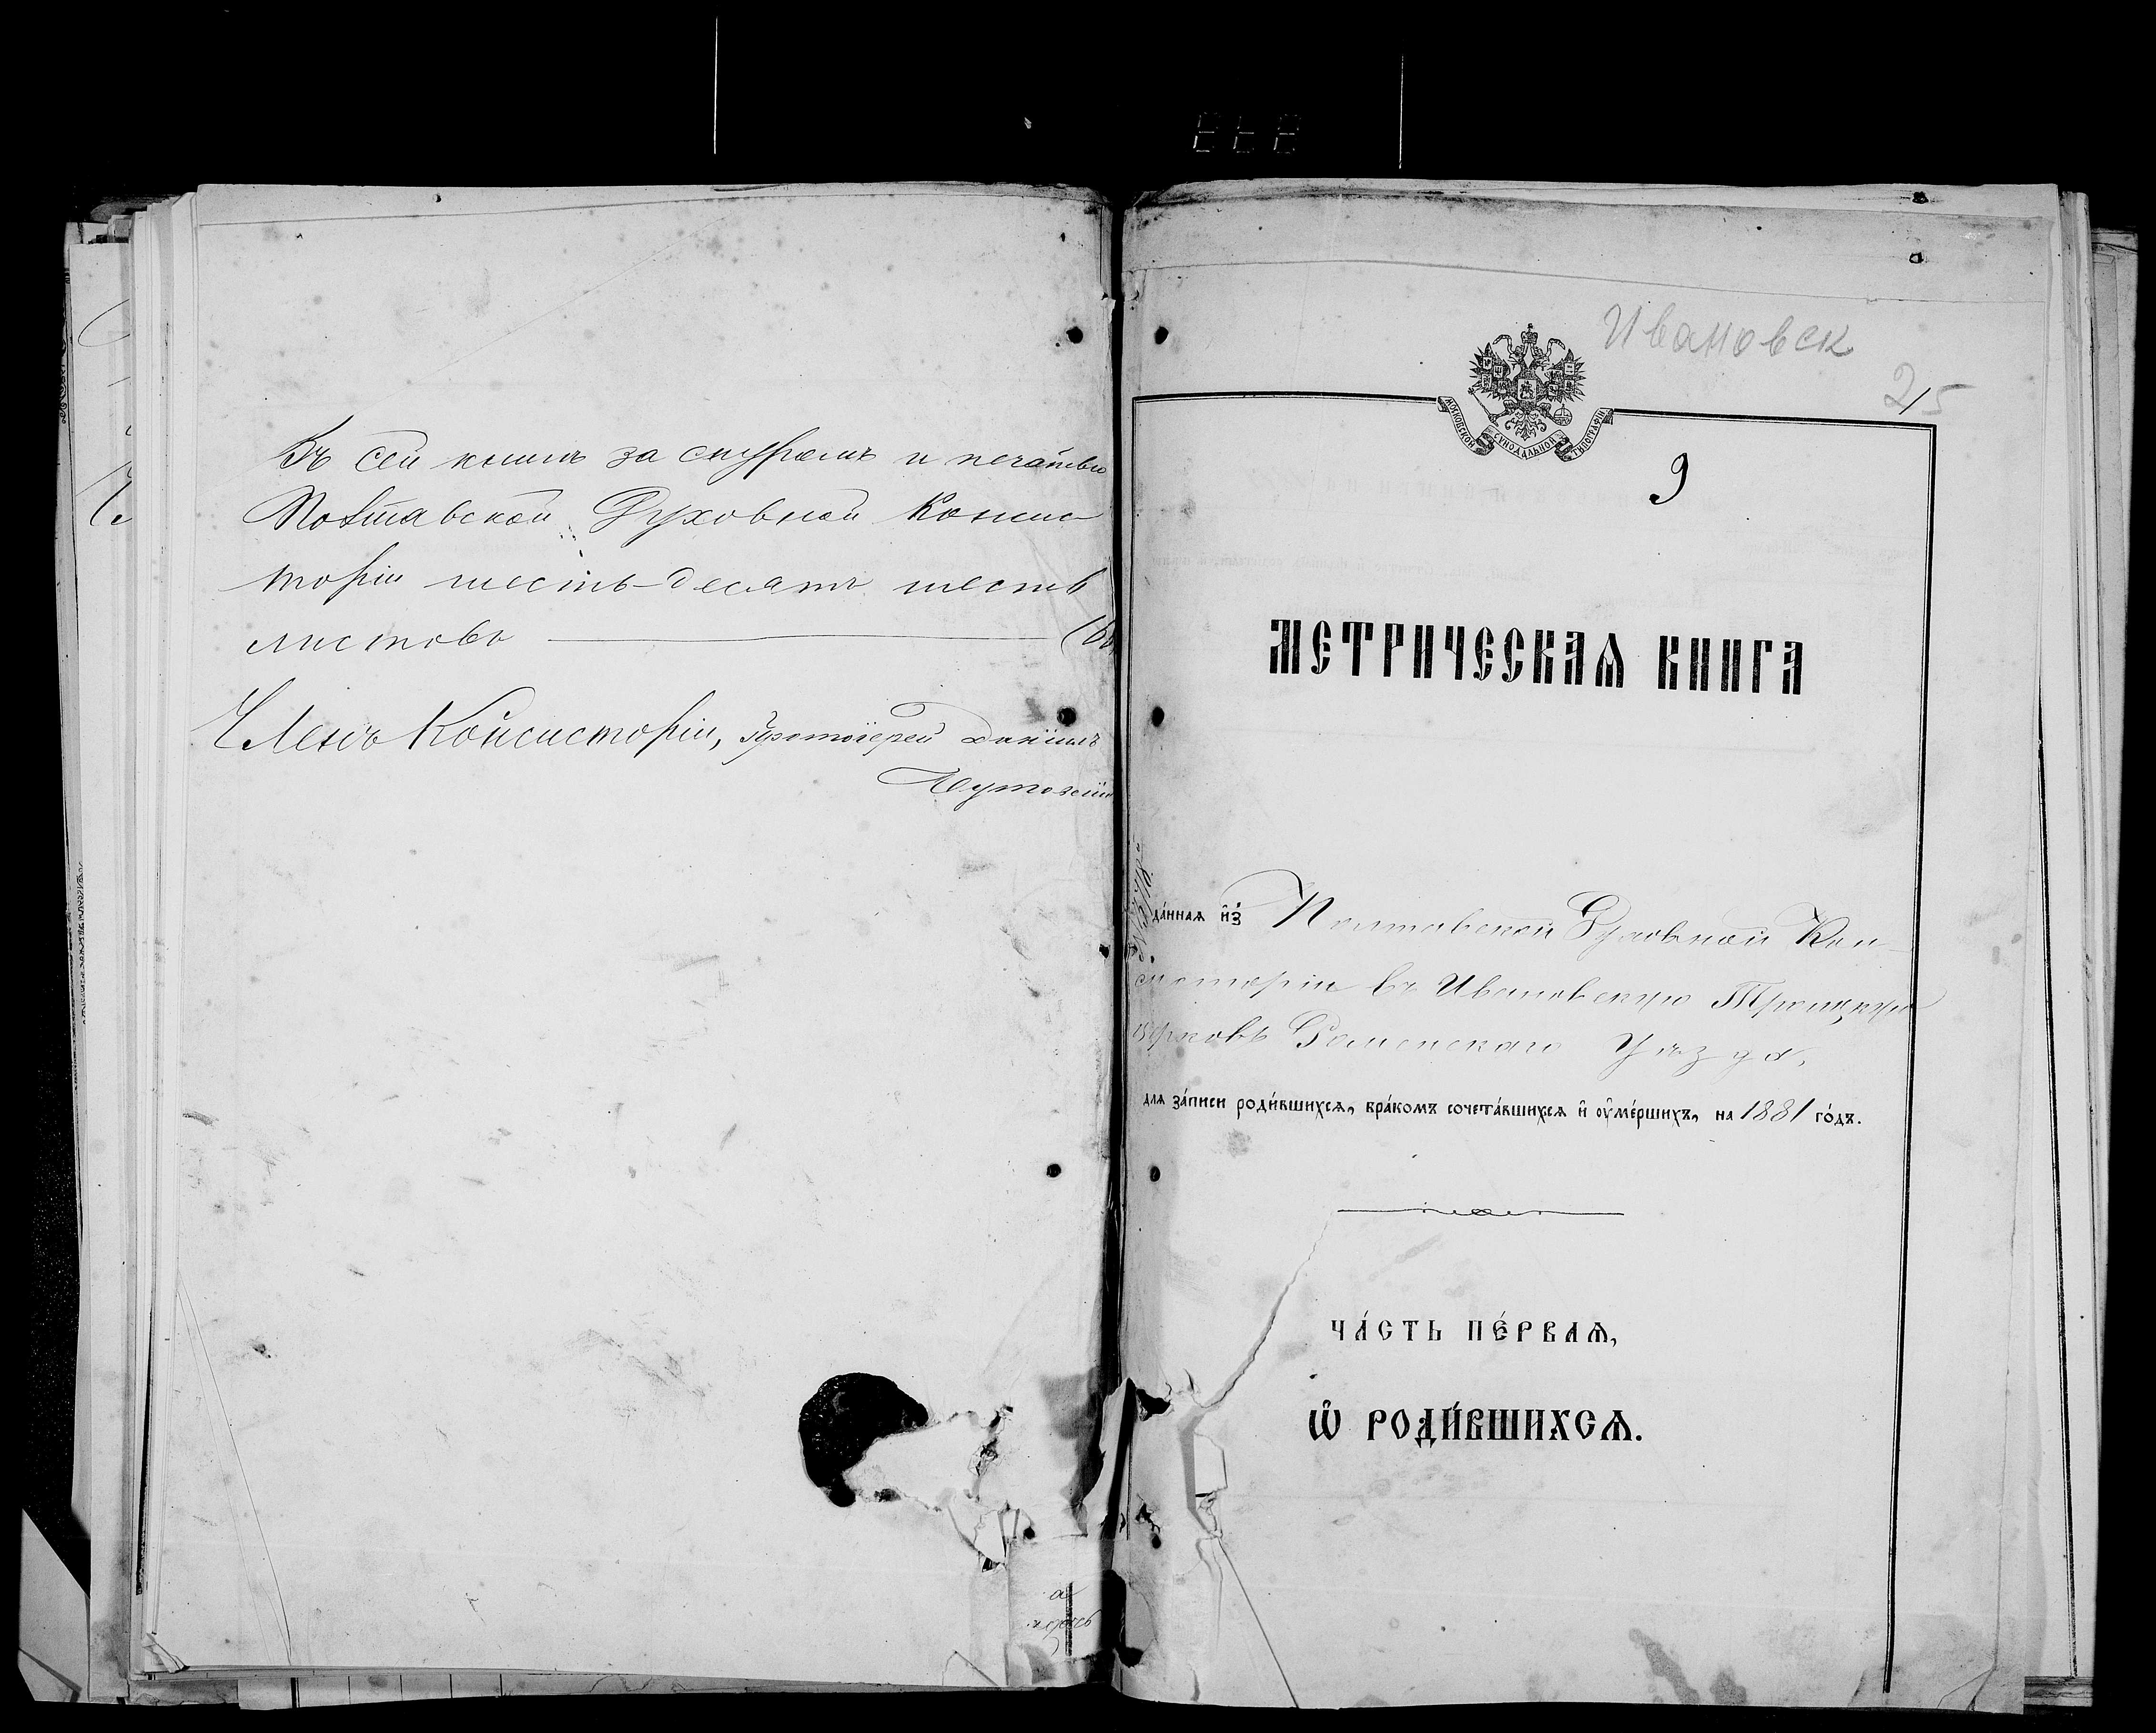 Въ сей книгѣ за скурѣпъ и печатью
Полтавской Духовной Консис-
торіи шесть-десятъ шесть
листовъ
Членъ Консисторіи, Протоіерей Даніилъ
Ивановск
25
МОСКОВСКОЙ СѴНОДАЛЬНОЙ ТИПОГРАФІИ
9
МЕТРИЧЕСКАѦ КНИГА
да́ннаѧ и҆з̾ Полтавской Духовной Кон-
систоріи въ Ивановскую Троицкую
церковь Роменскаго Уѣзда,
длѧ за́писи роди́вшихсѧ, бра́комъ сочета́вшихсѧ и҆ оу҆ме́ршихъ, на 1881 го́дъ.
ЧА́СТЬ ПЕ́РВАѦ,
Ѡ҆ РОДИ́ВШИХСѦ.